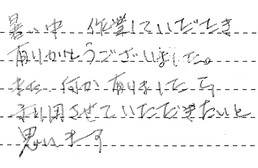 暑い中 作業していただき
有りがとうございました。
また 何か有りましたら
利用させていただきたいと
思います